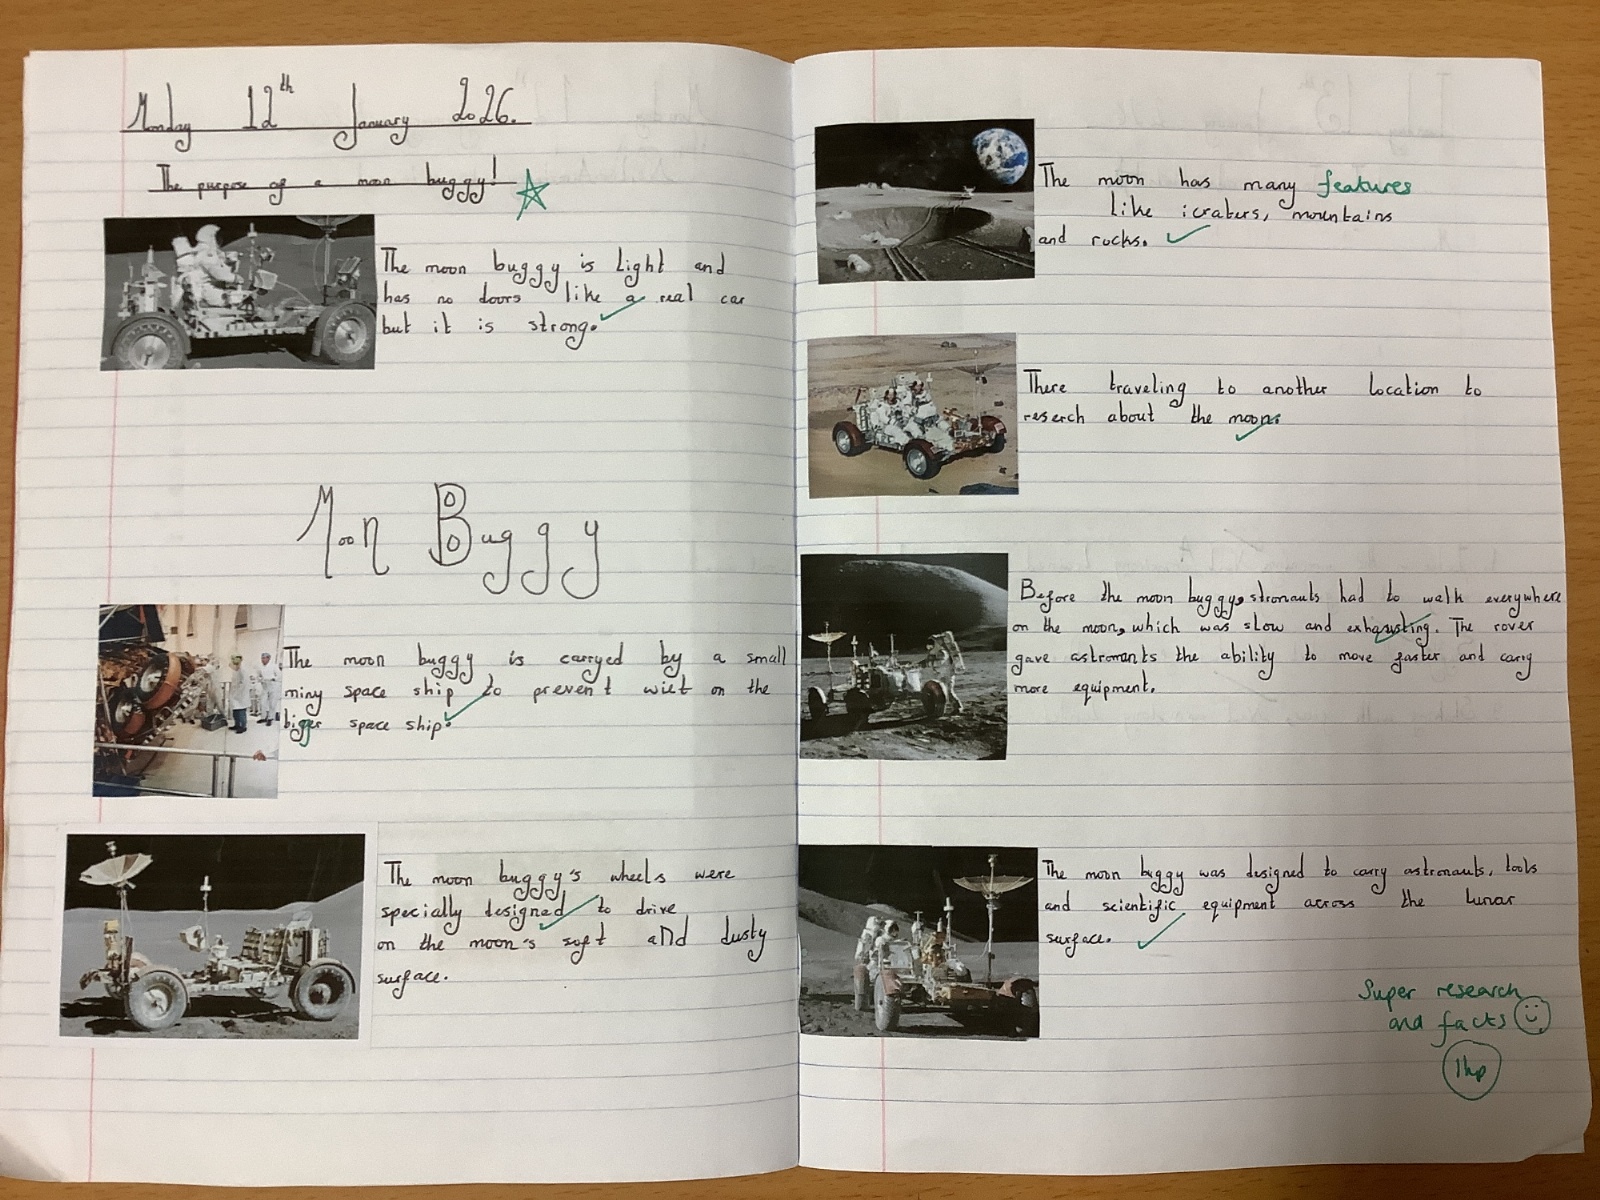 Monday 12th January 2026.
The purpose of a moon buggy!
The moon buggy is light and
has no doors like a real car
but it is strong.
Moon Buggy
The moon buggy is carryed by a small
miny space ship to prevent wiet on the
bigger space ship.
The moon buggy's wheels were
specially designed to drive
on the moon's soft and dusty
surface.
The moon has many features
like craters, mountains
and rocks.
There traveling to another location to
reserch about the moon.
Before the moon buggy, stronauts had to walk everywhere
on the moon, which was slow and exhausting. The rover
gave astronauts the ability to move faster and carry
more equipment.
The moon buggy was designed to carry astronauts, tools
and scientific equipment across the lunar
surface.
Super research
and facts
1hp